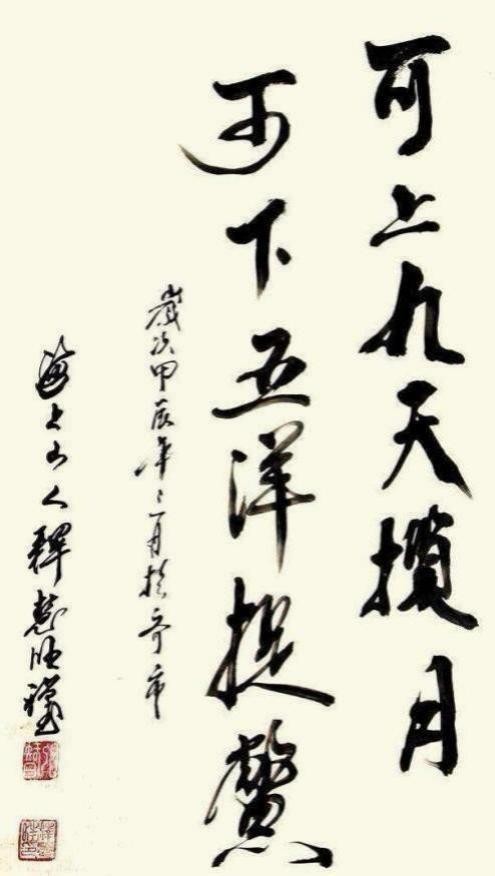 可上九天攬月
可下五洋捉鱉
歲次甲辰年三月於齊市
海上山人釋慧